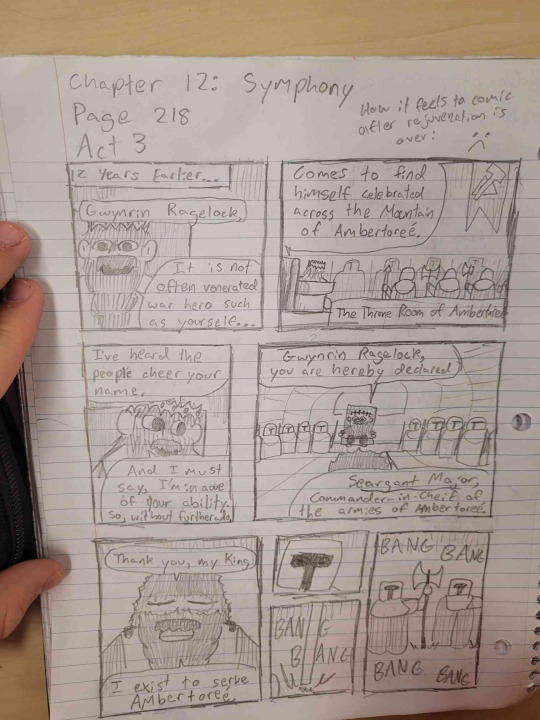 Chapter 12: Symphony
Page 218
Act 3
How it feels to comic
after rejuvenation is
over:
12 Years Earlier...
Gwynrin Ragelock,
It is not
often venerated
war hero such
as yourself...
Comes to find
himself celebrated
across the Mountain
of Ambertoreé.
The Throne Room of Ambertoreé
I've heard the
people cheer your
name.
And I must
say, I'm in awe
of your ability.
So, without further ado,
Gwynrin Ragelock,
you are hereby declared
Seargant Major,
Commander-in-Cheif of
the armies of Ambertoreé.
Thank you, my King.
I exist to serve
Ambertoreé.
BANG
BANG
BANG BANG
BANG BANG